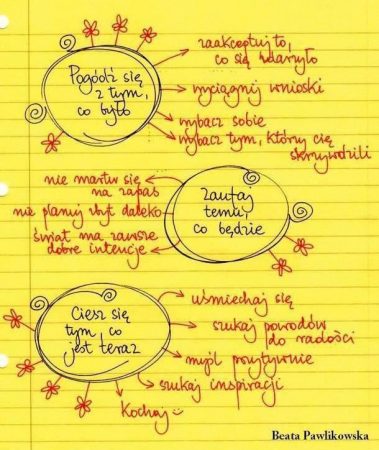 Pogódź się
z tym,
co było
zaakceptuj to,
co się wdaryło
wyciągnij wnioski
wybacz sobie
wybacz tym, który cię
skrzywdzili
nie martw się
na zapas
nie planuj zbyt daleko
świat ma zawsze
dobre intencje
zaufaj
temu,
co będzie
Ciesz się
tym, co
jest teraz
uśmiechaj się
szukaj powodów
do radości
myśl pozytywnie
szukaj inspiracji
Kochaj :)
Beata Pawlikowska